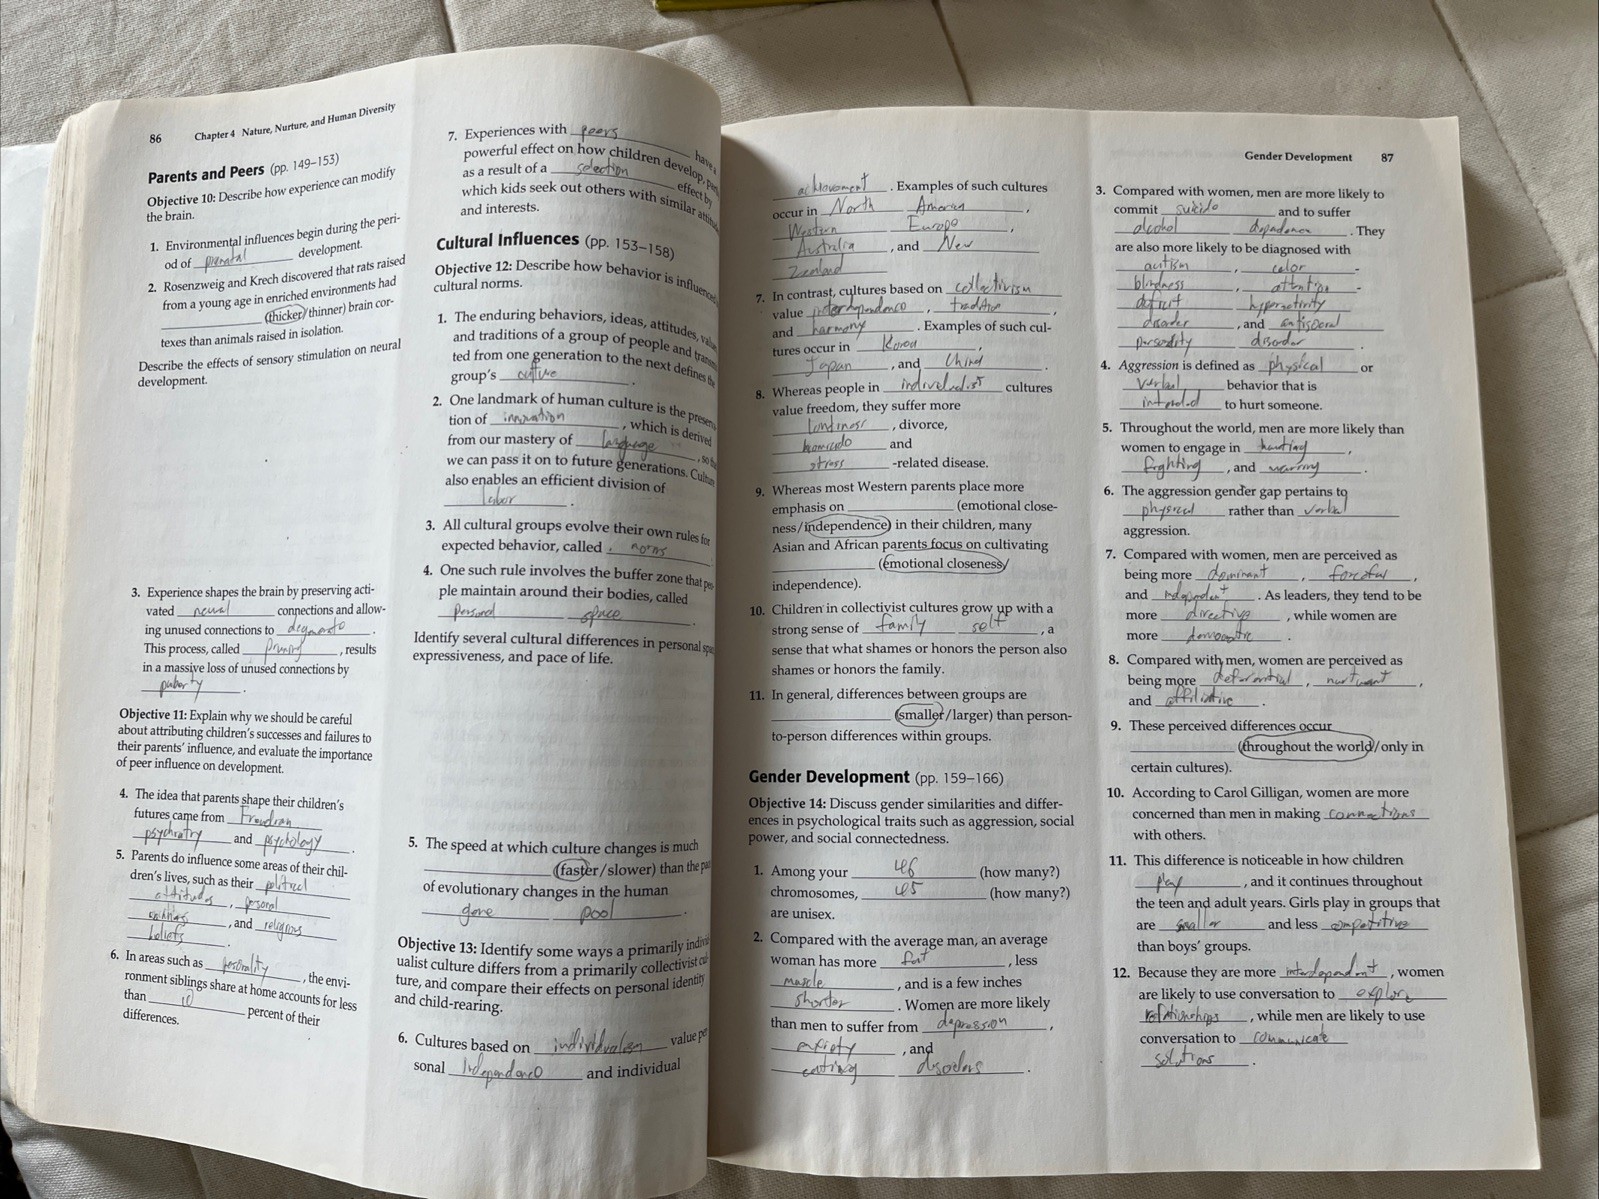 86 Chapter 4 Nature, Nurture, and Human Diversity
Parents and Peers (pp. 149–153)
Objective 10: Describe how experience can modify
the brain.
1. Environmental influences begin during the peri-
od of prenatal development.
2. Rosenzweig and Krech discovered that rats raised
from a young age in enriched environments had
(thicker/thinner) brain cor-
texes than animals raised in isolation.
Describe the effects of sensory stimulation on neural
development.
3. Experience shapes the brain by preserving acti-
vated neural connections and allow-
ing unused connections to
This process, called pruning, results
in a massive loss of unused connections by
puberty.
Objective 11: Explain why we should be careful
about attributing children's successes and failures to
their parents' influence, and evaluate the importance
of peer influence on development.
4. The idea that parents shape their children's
futures came from Freudian
psychiatry and psychology.
5. Parents do influence some areas of their chil-
dren's lives, such as their political
attitudes, personal
, and religious
beliefs.
6. In areas such as personality, the envi-
ronment siblings share at home accounts for less
than 10 percent of their
differences.
7. Experiences with peers have a
powerful effect on how children develop,
as a result of a selection effect by
which kids seek out others with similar
and interests.
Cultural Influences (pp. 153–158)
Objective 12: Describe how behavior is influenced
cultural norms.
1. The enduring behaviors, ideas, attitudes,
and traditions of a group of people and
ted from one generation to the next defines the
group's culture.
2. One landmark of human culture is the
tion of innovation, which is derived
from our mastery of language,
we can pass it on to future generations. Culture
also enables an efficient division of
labor.
3. All cultural groups evolve their own rules for
expected behavior, called norms
4. One such rule involves the buffer zone that
ple maintain around their bodies, called
personal space.
Identify several cultural differences in personal
expressiveness, and pace of life.
5. The speed at which culture changes is much
(faster/slower) than the
of evolutionary changes in the human
gene pool.
Objective 13: Identify some ways a primarily
ualist culture differs from a primarily collectivist
ture, and compare their effects on personal identity
and child-rearing.
6. Cultures based on individualism value
sonal Independence and individual
Gender Development 87
achievement. Examples of such cultures
occur in North America,
Western Europe,
Australia, and New
Zealand
7. In contrast, cultures based on collectivism
value interdependence, tradition,
and harmony. Examples of such cul-
tures occur in Korea,
Japan, and China.
8. Whereas people in individualist cultures
value freedom, they suffer more
loneliness, divorce,
homicide and
stress-related disease.
9. Whereas most Western parents place more
emphasis on (emotional close-
ness/independence) in their children, many
Asian and African parents focus on cultivating
(emotional closeness/
independence).
10. Children in collectivist cultures grow up with a
strong sense of family self, a
sense that what shames or honors the person also
shames or honors the family.
11. In general, differences between groups are
(smaller/larger) than person-
to-person differences within groups.
Gender Development (pp. 159–166)
Objective 14: Discuss gender similarities and differ-
ences in psychological traits such as aggression, social
power, and social connectedness.
1. Among your 46 (how many?)
chromosomes, 45 (how many?)
are unisex.
2. Compared with the average man, an average
woman has more fat, less
muscle, and is a few inches
shorter. Women are more likely
than men to suffer from depression,
anxiety, and
eating disorders.
3. Compared with women, men are more likely to
commit suicide and to suffer
alcohol dependence. They
are also more likely to be diagnosed with
autism, color-
blindness, attention-
deficit hyperactivity
disorder, and antisocial
personality disorder.
4. Aggression is defined as physical or
verbal behavior that is
intended to hurt someone.
5. Throughout the world, men are more likely than
women to engage in hunting,
fighting, and warring.
6. The aggression gender gap pertains to
physical rather than verbal
aggression.
7. Compared with women, men are perceived as
being more dominant, forceful,
and independent. As leaders, they tend to be
more directive, while women are
more democratic.
8. Compared with men, women are perceived as
being more deferential, nurturant,
and affiliative.
9. These perceived differences occur
(throughout the world/only in
certain cultures).
10. According to Carol Gilligan, women are more
concerned than men in making connections
with others.
11. This difference is noticeable in how children
play, and it continues throughout
the teen and adult years. Girls play in groups that
are smaller and less competitive
than boys' groups.
12. Because they are more interdependent, women
are likely to use conversation to explore
relationships, while men are likely to use
conversation to communicate
solutions.